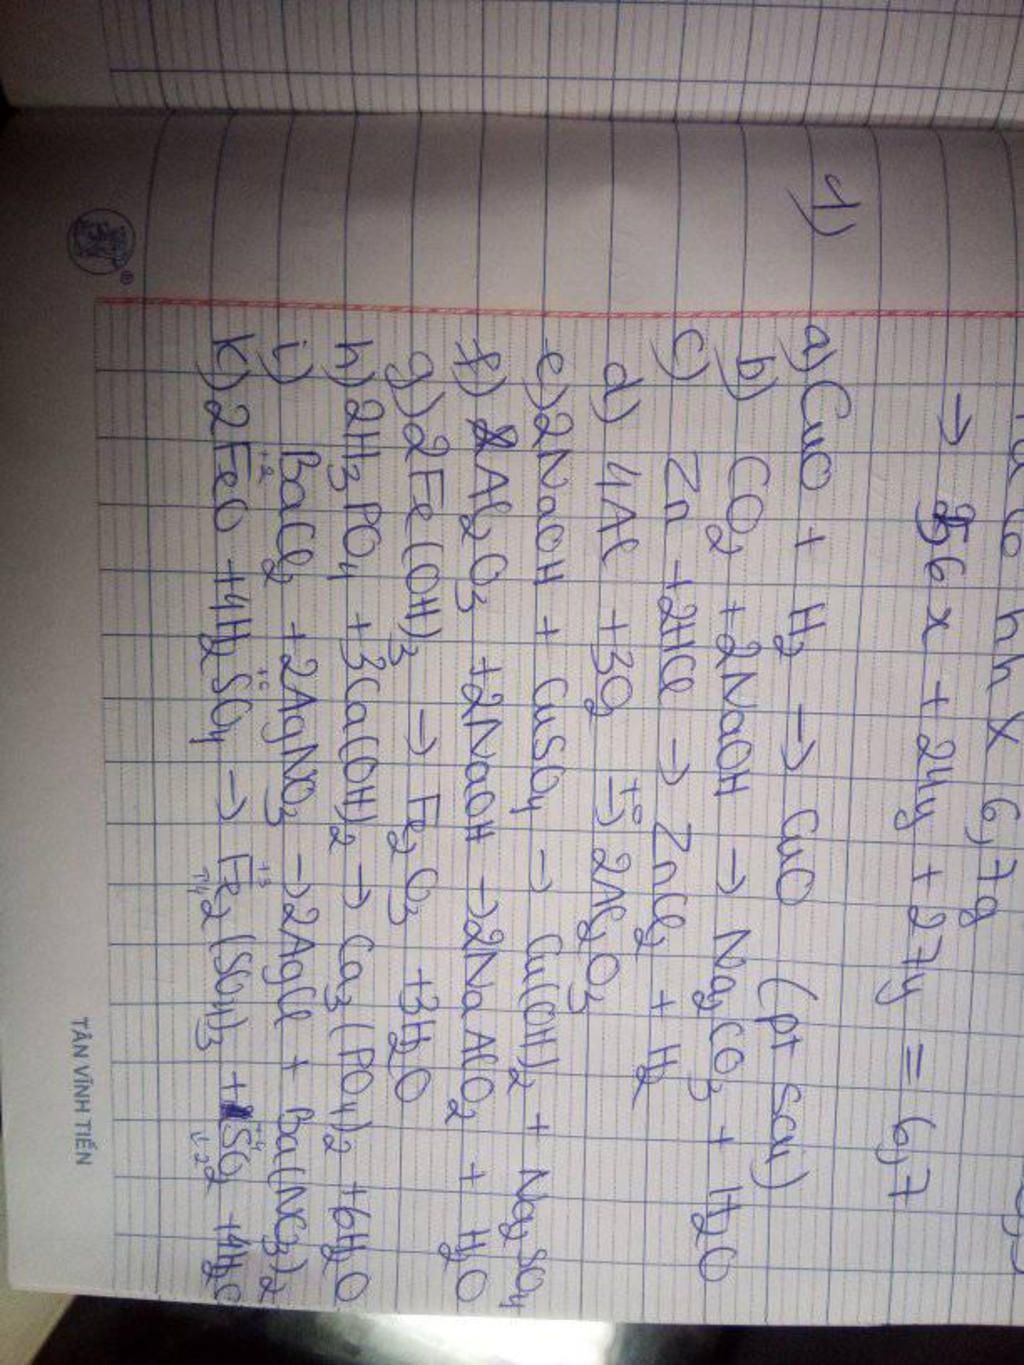 hh X 6,7g
→ 56x + 24y + 27y = 6,7
1)
a) CuO + H2 → CuO (pt sai)
b) CO2 + 2NaOH → Na2CO3 + H2O
c) Zn + 2HCl → ZnCl2 + H2
d) 4Al + 3O2 →t° 2Al2O3
e) 2NaOH + CuSO4 → Cu(OH)2 + Na2SO4
f) Al2O3 + 2NaOH → 2NaAlO2 + H2O
g) 2Fe(OH)3 → Fe2O3 + 3H2O
h) 2H3PO4 + 3Ca(OH)2 → Ca3(PO4)2 + 6H2O
i) BaCl2 + 2AgNO3 → 2AgCl + Ba(NO3)2
+2 +6 +3 +4
k) 2FeO + 4H2SO4 → Fe2(SO4)3 + SO2 + 4H2O
TÂN VĨNH TIẾN
®